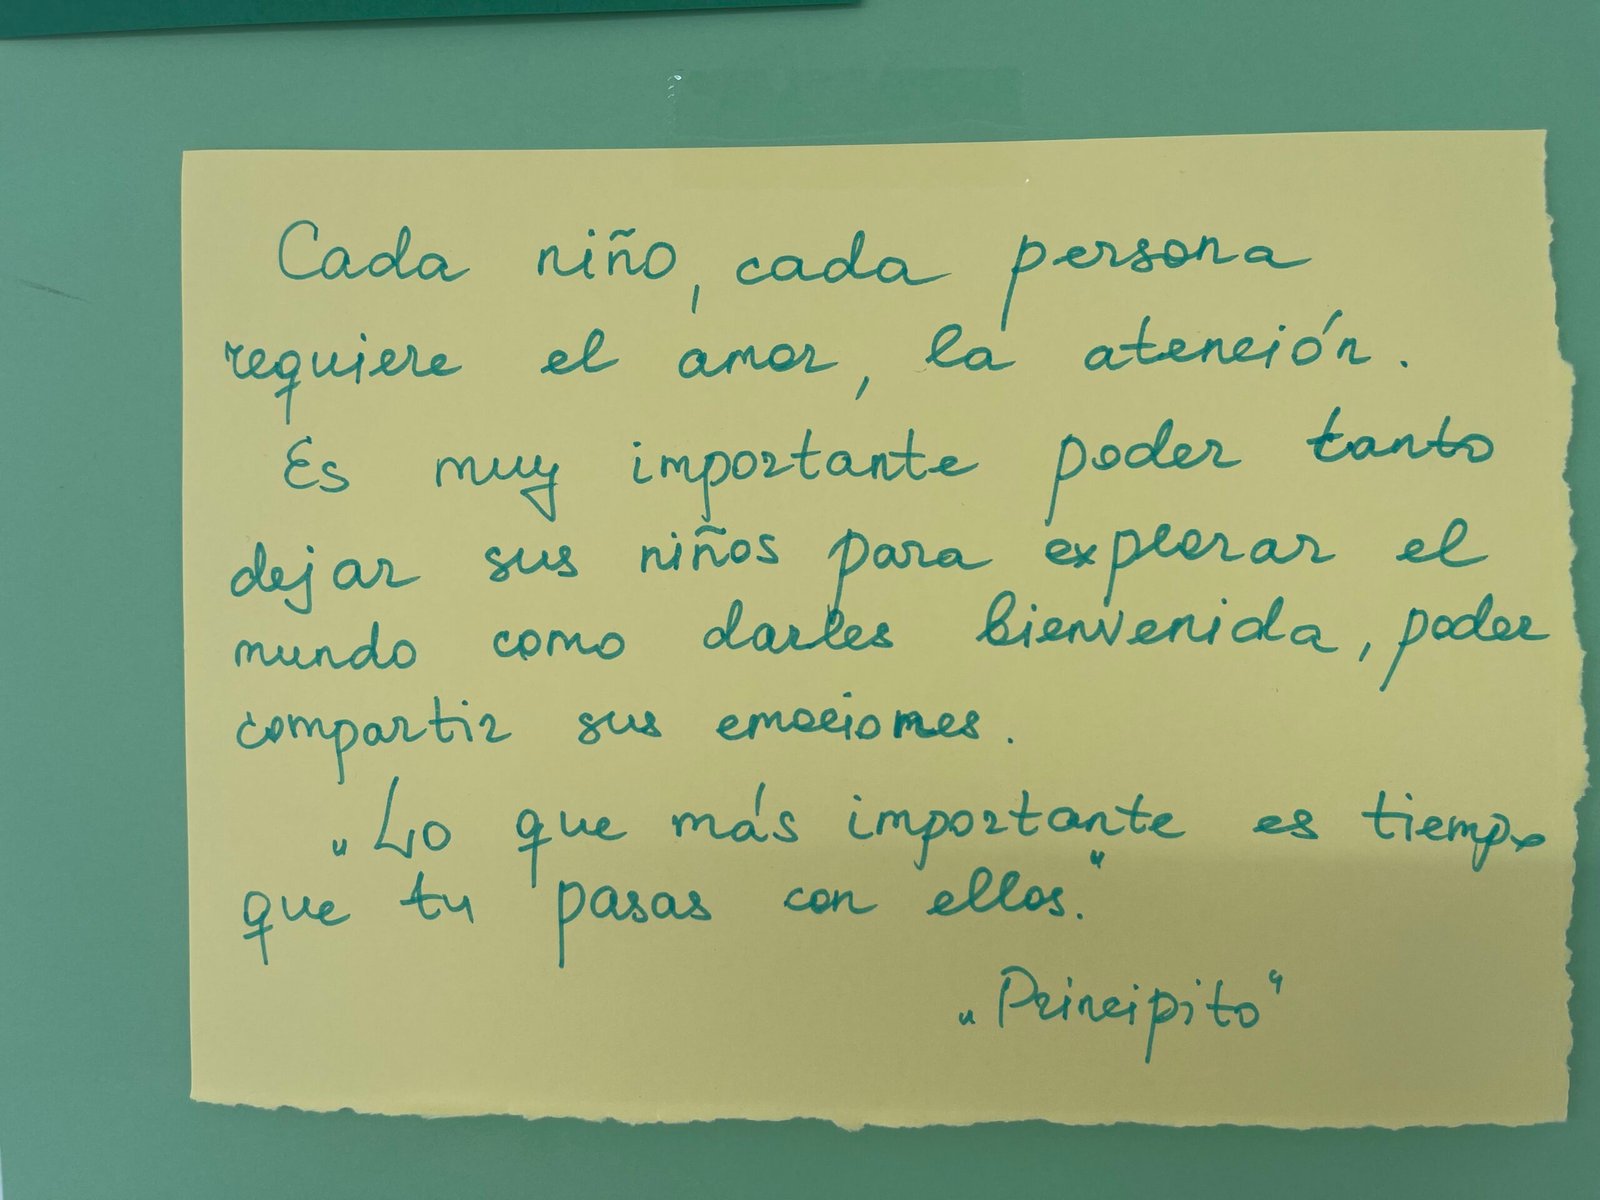 Cada niño, cada persona
requiere el amor, la atención.
Es muy importante poder tanto
dejar sus niños para explorar el
mundo como darles bienvenida, poder
compartir sus emociones.
„Lo que más importante es tiempo
que tu pasas con ellos."
„Principito"